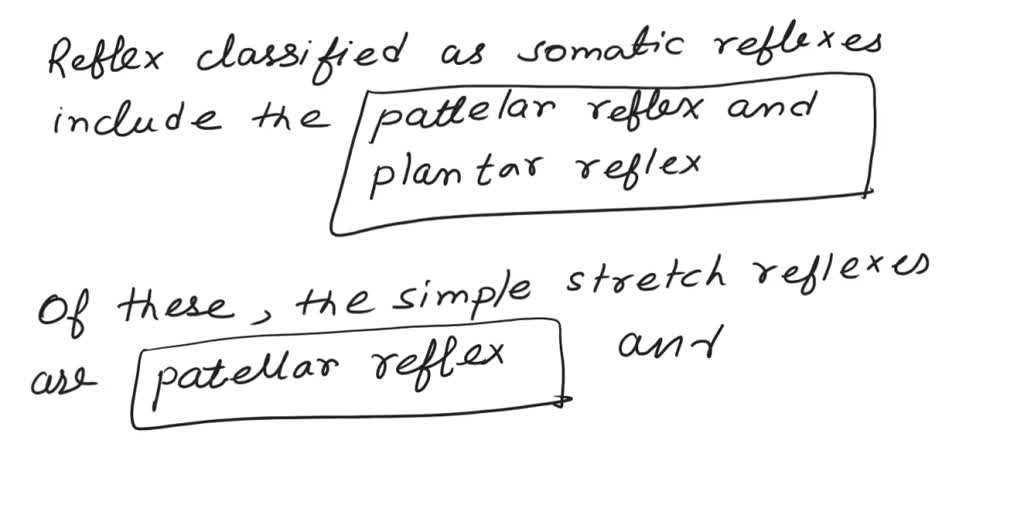 Reflex classified as somatic reflexes
include the pattelar reflex and
plantar reflex
Of these, the simple stretch reflexes
are patellar reflex and